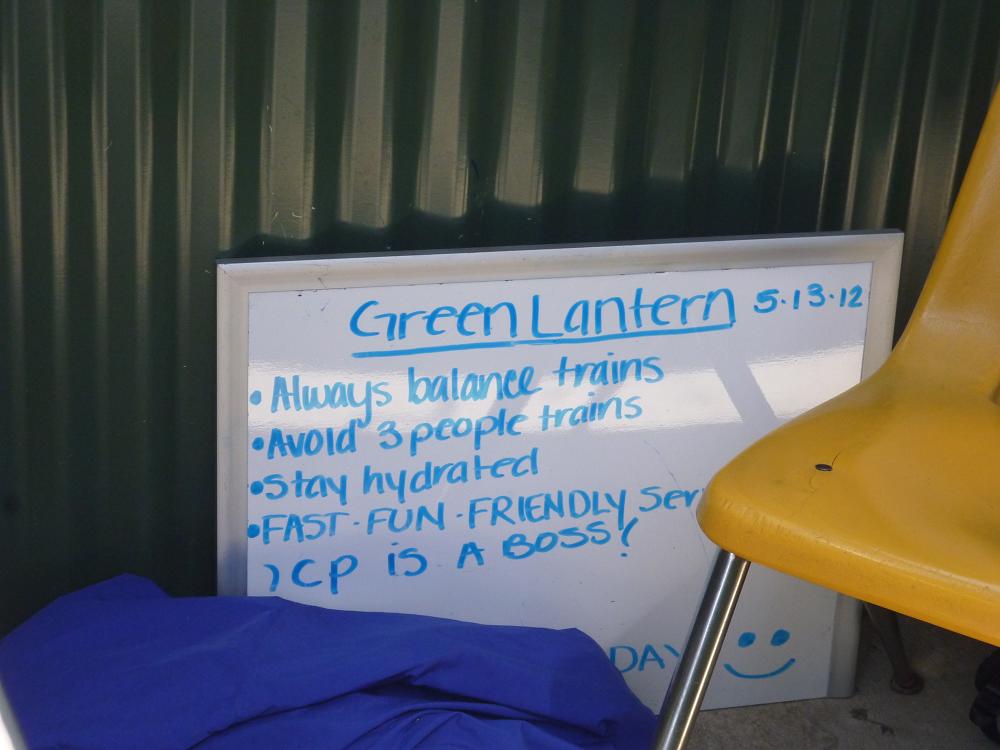 Green Lantern 5.13.12
• Always balance trains
• Avoid 3 people trains
• Stay hydrated
• FAST - FUN - FRIENDLY
CP is A BOSS!
DAY